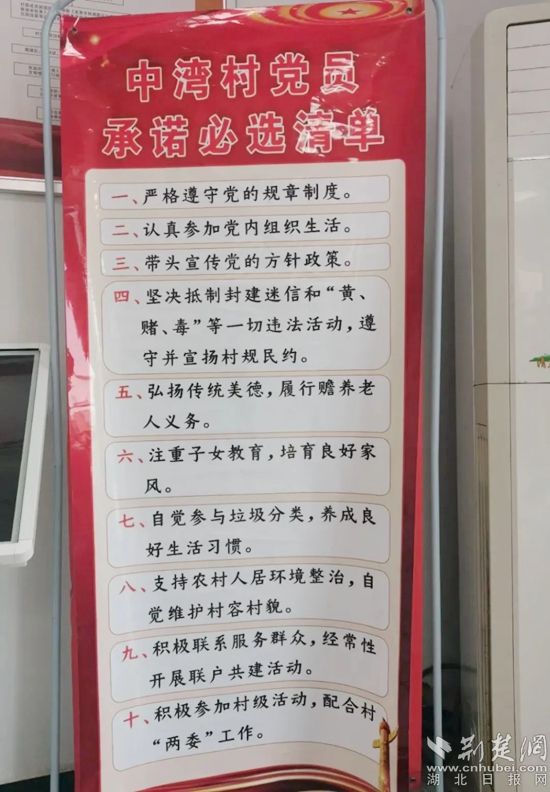 中湾村党员
承诺必选清单
一、严格遵守党的规章制度。
二、认真参加党内组织生活。
三、带头宣传党的方针政策。
四、坚决抵制封建迷信和“黄、
赌、毒”等一切违法活动，遵
守并宣扬村规民约。
五、弘扬传统美德，履行赡养老
人义务。
六、注重子女教育，培育良好家
风。
七、自觉参与垃圾分类，养成良
好生活习惯。
八、支持农村人居环境整治，自
觉维护村容村貌。
九、积极联系服务群众，经常性
开展联户共建活动。
十、积极参加村级活动，配合村
“两委”工作。
荆楚网
www.cnhubei.com
湖北日报网